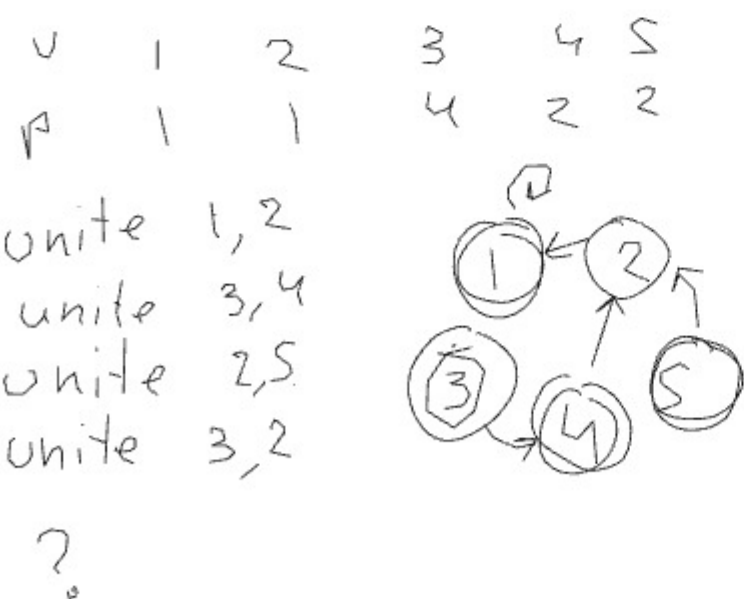 v 1 2 3 4 5
p 1 1 4 2 2
unite 1,2
unite 3,4
unite 2,5
unite 3,2
?
1 2
3 4 5